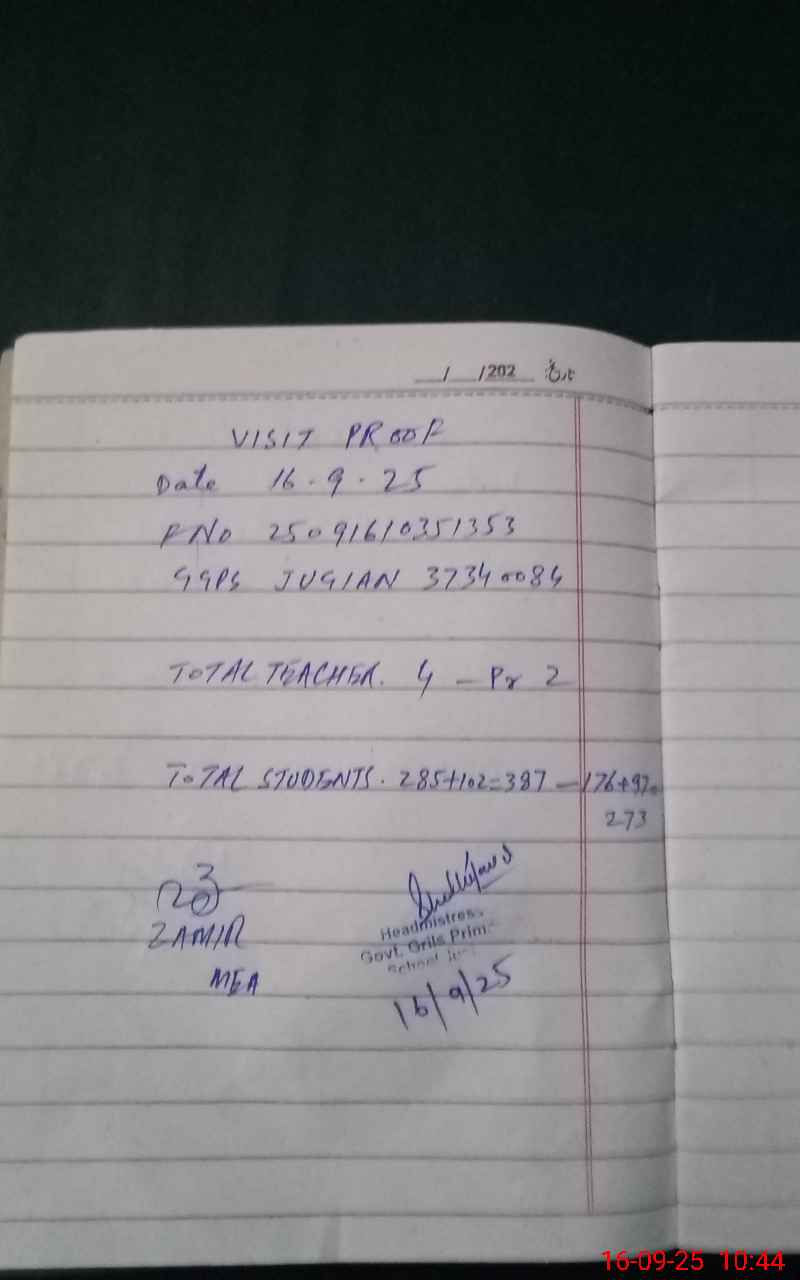 / /202 تاریخ
VISIT PROOF
Date 16.9.25
FNo 25091610351353
GGPS JUGIAN 37340084
TOTAL TEACHER. 4 — Pr 2
TOTAL STUDENTS. 285+102=387 — 176+97=
273
ZAMIR
MEA
Headmistress
Govt. Grils Prim
School
16/9/25
16-09-25 10:44